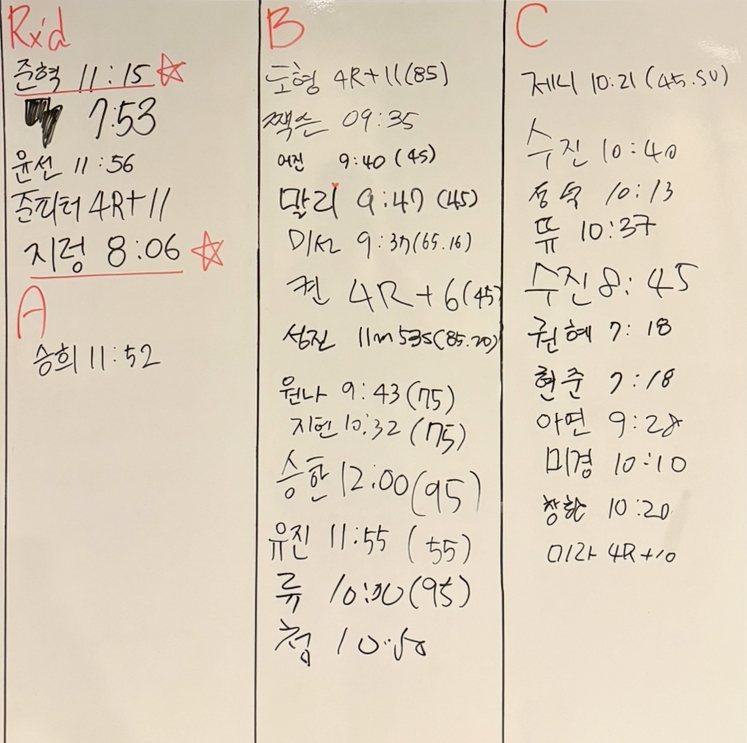 Rx'd
준혁 11:15
7:53
윤선 11:56
준피터 4R+11
지렁 8:06
A
승희 11:52
B
도형 4R+11(85)
짹슨 09:35
어진 9:40 (45)
말리 9:47 (45)
미선 9:37(65.16)
퀸 4R+6(45
성진 11m53s(85.20)
원나 9:43(75)
지헌 10:32 (75)
승한 12:00(95)
유진 11:55 (55)
류 10:00(95)
첨 10:50
C
제니 10:21 (45.SU)
수진 10:40
10:13
뜌 10:37
수진 8:45
권혜 7:18
현준 7:18
아연 9:28
미경 10:10
창환 10:20
미라 4R+10